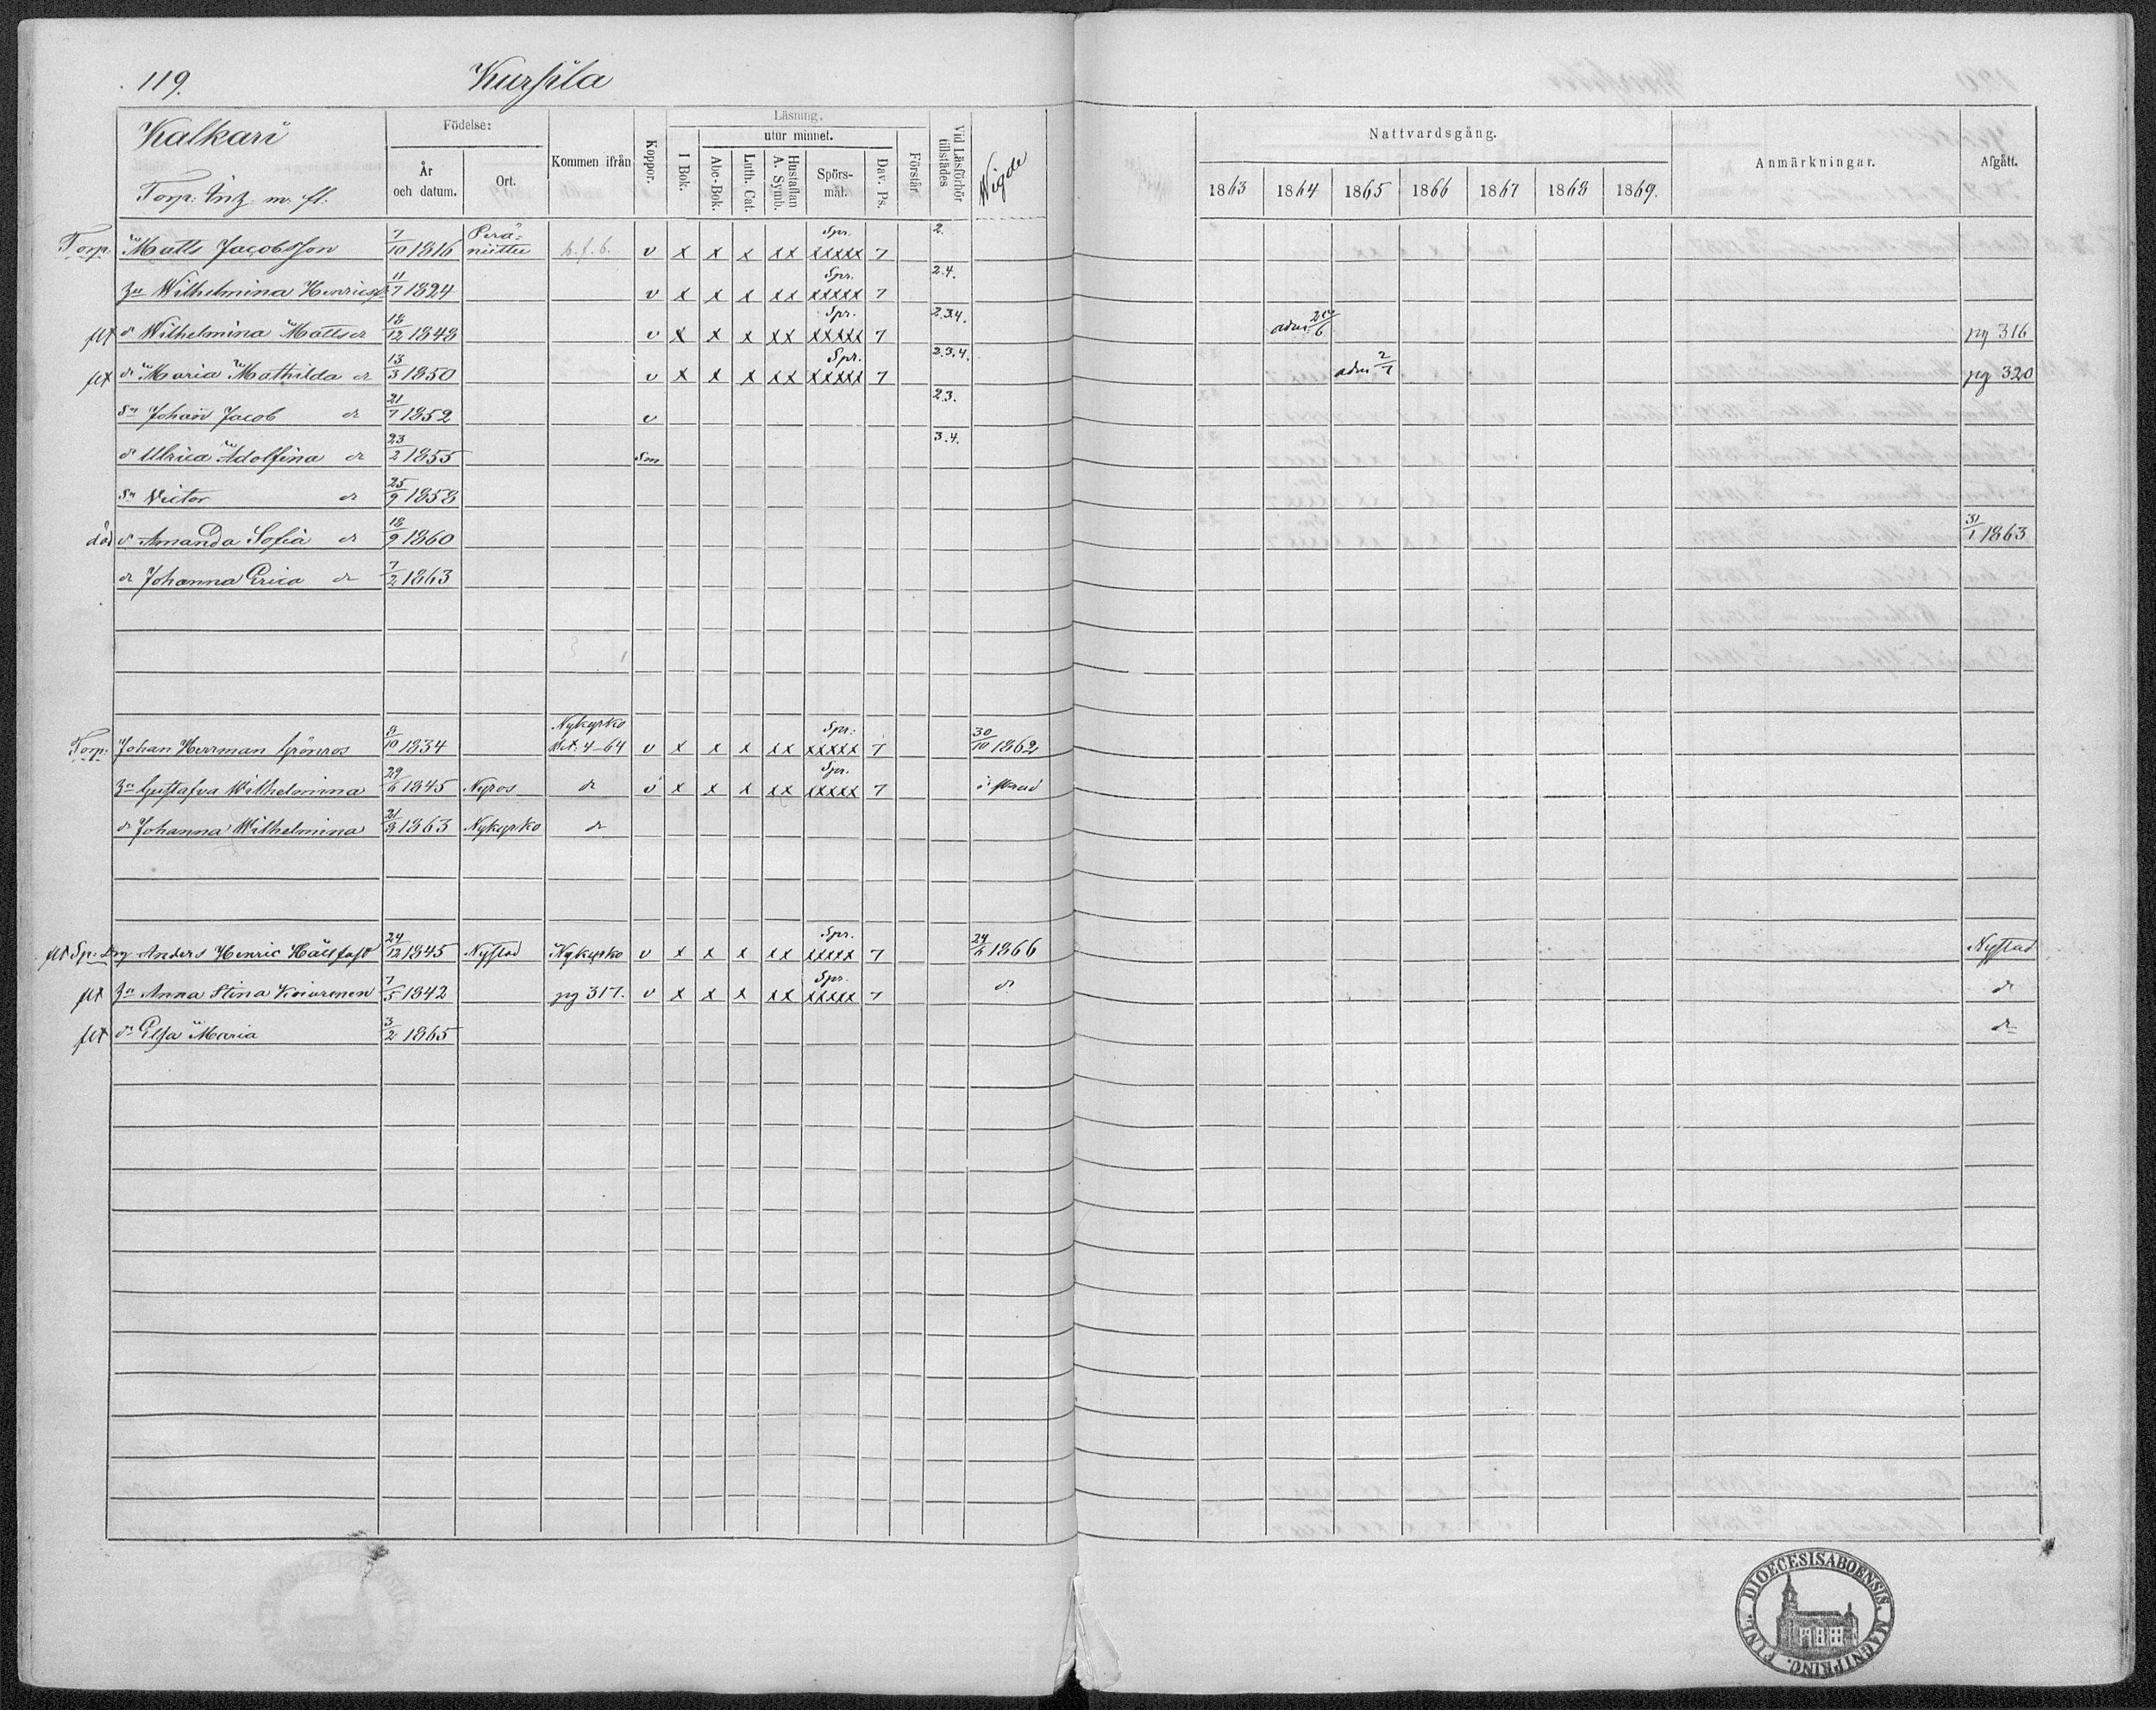 119. Kursila
Kalkari
Torp: Intg. m. fl.
Födelse: År och datum. Ort. Kommen ifrån Koppor. Läsning. I Bok. utur minnet. Abc-Bok. Luth. Cat. Hustaflan A. Symb. Spörsmål. Dav. Ps. Förstår Vid Läsförhör tillstädes Wigde
Nattvardsgång. 1863 1864 1865 1866 1867 1868 1869. Anmärkningar. Afgått.
Torp. Matts Jacobsson 7/10 1816 Peräniittu b.f.b. v x x x xx Spr. xxxxx 7 2.
Wilhelmina Henricsd 11/7 1824 v x x x xx Spr. xxxxx 7 2.4.
flt d Wilhelmina Mattsdr 18/12 1848 v x x x xx Spr. xxxxx 7 2.3.4. adm. 6 pg 316
flt dr Maria Mathilda dr 13/3 1850 v x x x xx Spr. xxxxx 7 2.3.4. adm 2/7 pg 320
Sn Johan Jacob dr 21/7 1852 v 2.3.
dr Ulrica Adolfina dr 23/2 1855 3.4.
Sn Victor dr 25/9 1858
död dr Amanda Sofia dr 18/9 1860 31/1 1863
dr Johanna Erica dr 7/2 1863
Torp: Johan Herrman Grönros 8/10 1834 Nykyrko Bet: 4-64 v x x x xx Spr: xxxxx 7 30/10 1862
Gustafva Wilhelmina 29/6 1845 Nyros dr v x x x xx Spr. xxxxx 7
dr Johanna Wilhelmina 21/8 1863 Nykyrko dr
flt Anders Henric Hällfast 24/12 1845 Nystad Nykyrko v x x x xx Spr. xxxxx 7 24/6 1866 Nystad
flt Anna Stina 7/5 1842 pg 317. v x x x xx Spr. xxxxx 7 dr dr
flt dr Elsa Maria 3/2 1865 dr
FINL. DIOECESIS ABOENSIS. MAGNI PRINC.